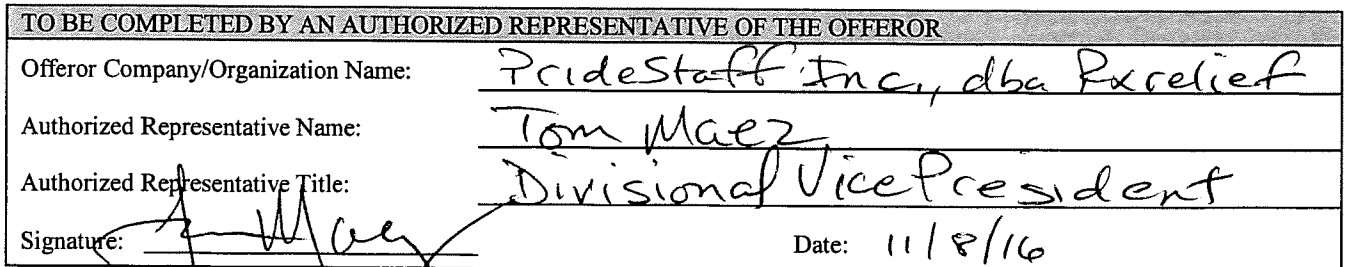 TO BE COMPLETED BY AN AUTHORIZED REPRESENTATIVE OF THE OFFEROR
Offeror Company/Organization Name: PrideStaff Inc., dba Rxrelief
Authorized Representative Name: Tom Maez
Authorized Representative Title: Divisional Vice President
Signature: Tom Maez Date: 11/8/16